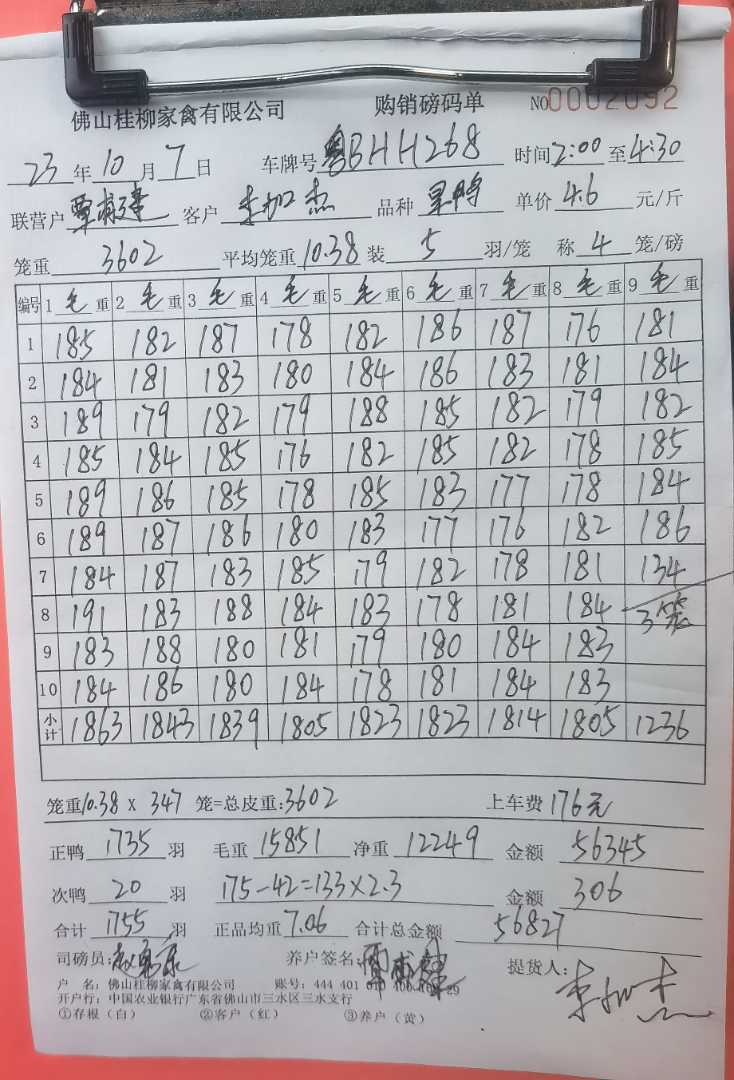 佛山桂柳家禽有限公司 购销磅码单 NO0002092
23 年 10 月 7 日 车牌号 粤BHH268 时间 2:00 至 4:30
联营户 客户 李加杰 品种 单价 4.6 元/斤
笼重 3602 平均笼重 10.38 装 5 羽/笼 称 4 笼/磅
编号 1 毛 重 2 毛 重 3 毛 重 4 毛 重 5 毛 重 6 毛 重 7 毛 重 8 毛 重 9 毛 重
1 185 182 187 178 182 186 187 176 181
2 184 181 183 180 184 186 183 181 184
3 189 179 182 179 188 185 182 179 182
4 185 184 185 176 182 185 182 178 185
5 189 186 185 178 185 183 177 178 184
6 189 187 186 180 183 177 176 182 186
7 184 187 183 185 179 182 178 181 134
8 191 183 188 184 183 178 181 184 3笼
9 183 188 180 181 179 180 184 183
10 184 186 180 184 178 181 184 183
小计 1863 1843 1839 1805 1823 1823 1814 1805 1236
笼重 10.38 X 347 笼=总皮重: 3602 上车费 176元
正鸭 1735 羽 毛重 15851 净重 12249 金额 56345
次鸭 20 羽 175-42=133×2.3 金额 306
合计 1755 羽 正品均重 7.06 合计总金额 56827
司磅员: 养户签名: 提货人: 李加杰
户 名: 佛山桂柳家禽有限公司 账号: 444 401
开户行: 中国农业银行广东省佛山市三水区三水支行
①存根(白) ②客户(红) ③养户(黄)